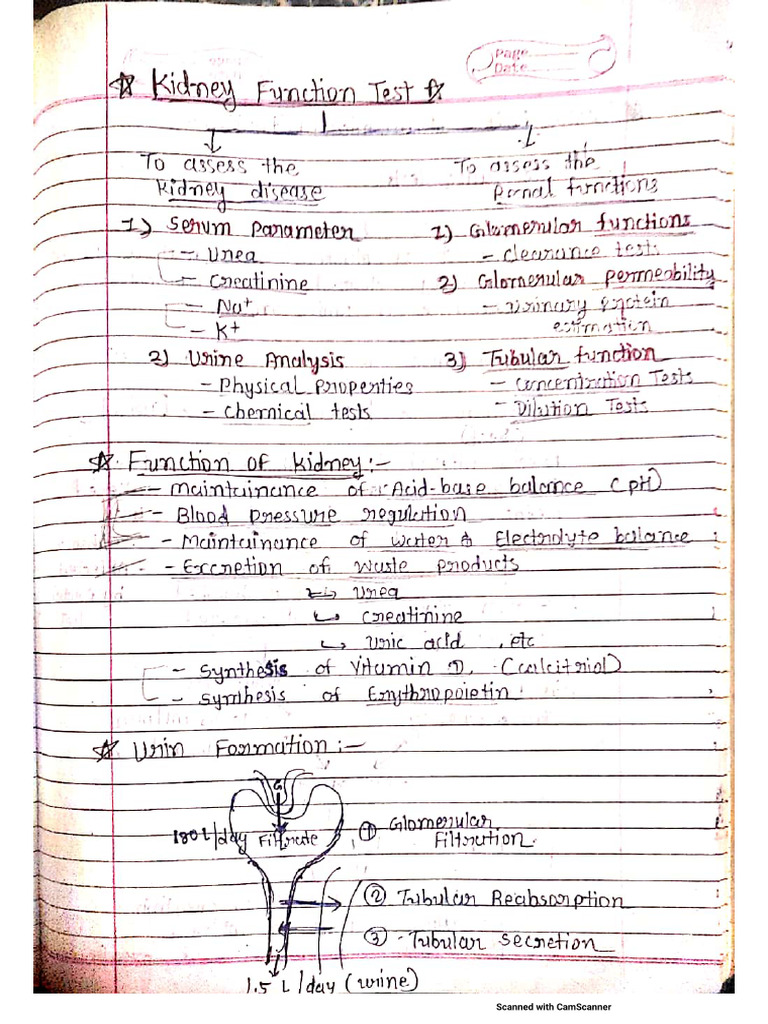 Page
Date
☆ Kidney Function Test ☆
To assess the To assess the
Kidney disease Renal functions
1) Serum Parameter 1) Glomerular functions
- Urea - clearance tests
- Creatinine 2) Glomerular permebility
- Na+ - urinary protein
- K+ estimation
2) Urine Analysis 3) Tubular function
- Physical Properties - Concentration Tests
- Chemical tests - Dilution Tests
☆ Function of kidney :-
- Maintainance of Acid-base balance (pH)
- Blood pressure regulation
- Maintainance of water & Electrolyte balance
- Excretion of Waste products
↳ Urea
↳ Creatinine
↳ Uric acid , etc
- Synthesis of Vitamin D. (calcitriol)
- Synthesis of Erythropoietin
☆ Urin Formation :-
G
180 L/day Filtrate ① Glomerular
Filtration.
② Tubular Reabsorption
③ - Tubular secretion
1.5 L/day (urine)
Scanned with CamScanner